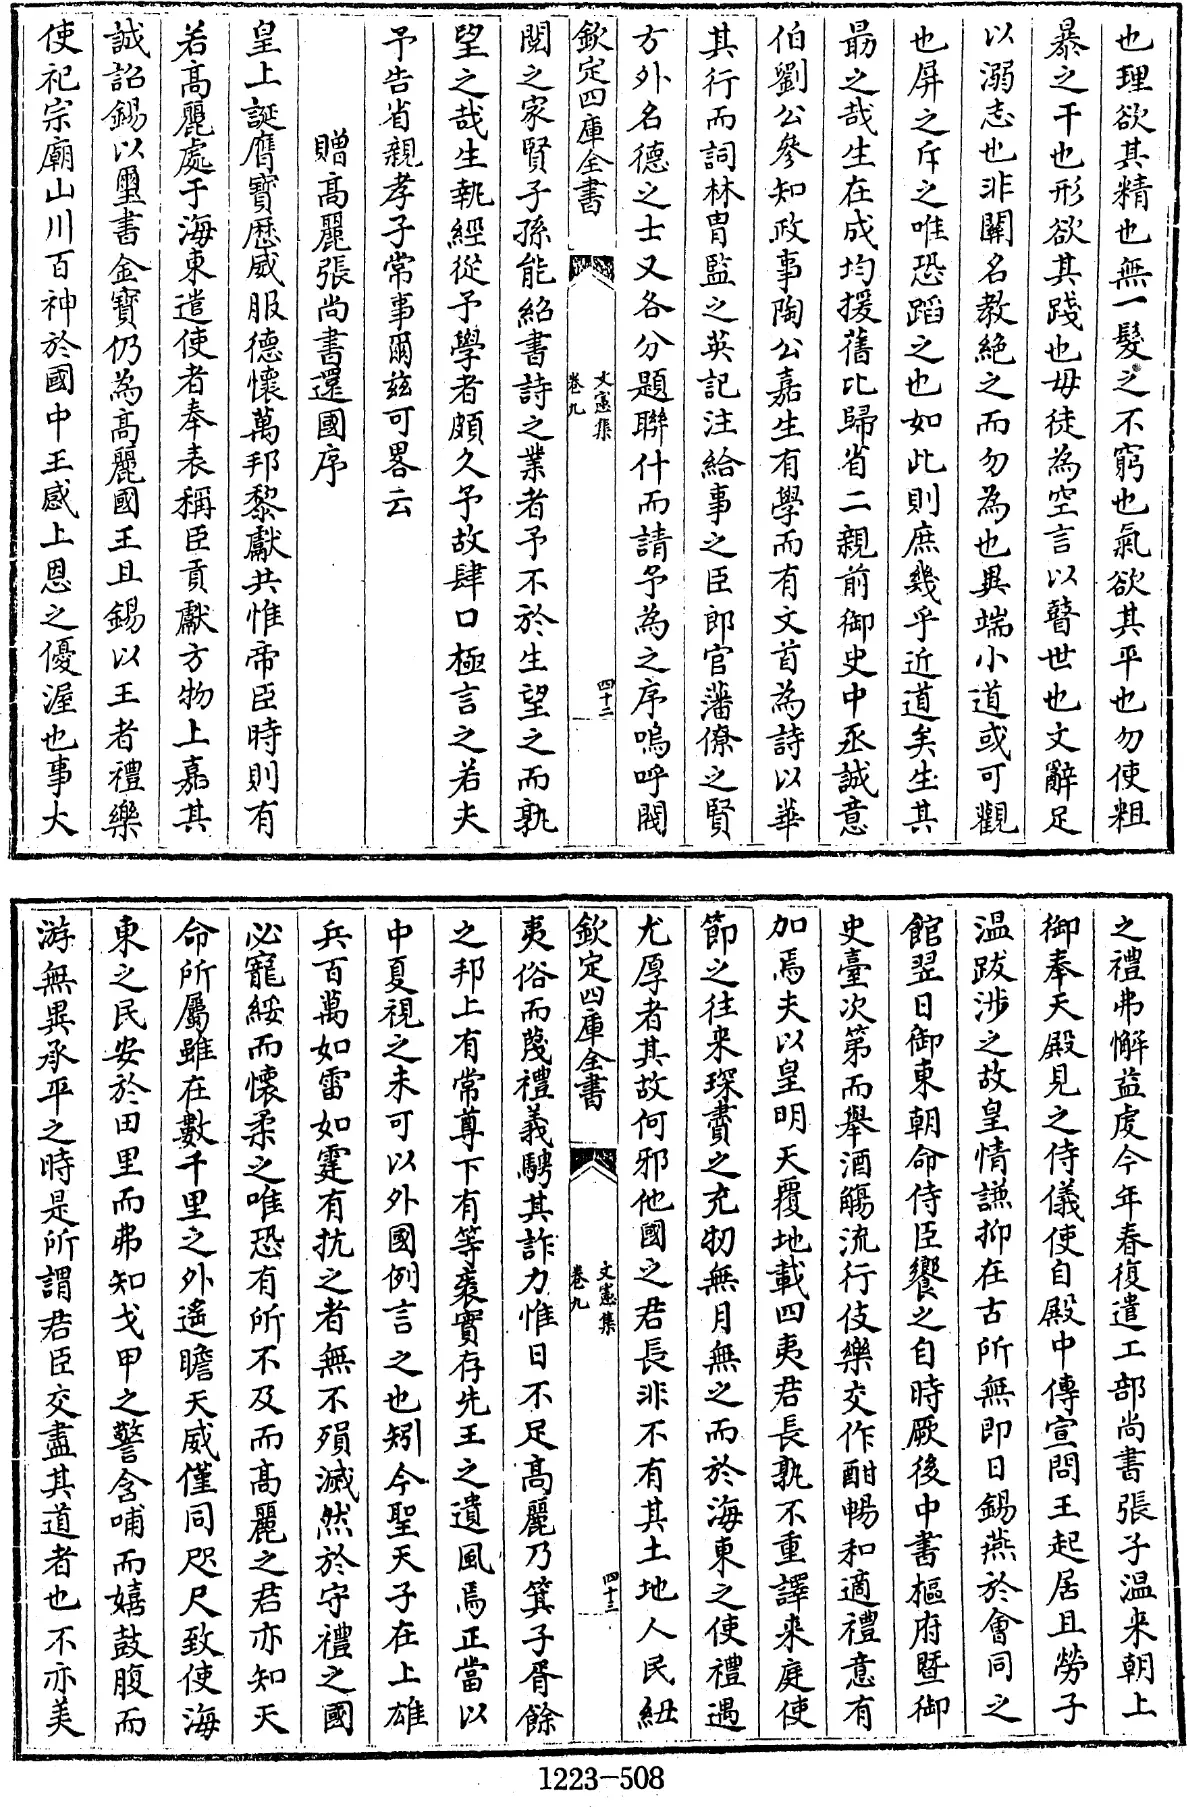 也理欲其精也無一髮之不窮也氣欲其平也勿使粗
暴之干也形欲其踐也毋徒為空言以瞽世也文辭足
以溺志也非關名教絶之而勿為也異端小道或可觀
也屏之斥之唯恐蹈之也如此則庶幾乎近道矣生其
勗之哉生在成均援舊比歸省二親前御史中丞誠意
伯劉公參知政事陶公嘉生有學而有文首為詩以華
其行而詞林胄監之英記注給事之臣郎官藩僚之賢
方外名德之士又各分題聯什而請予為之序嗚呼閥
欽定四庫全書
文憲集
卷九
四十二
閱之家賢子孫能紹書詩之業者予不於生望之而孰
望之哉生執經從予學者頗久予故肆口極言之若夫
予告省親孝子常事爾兹可畧云
贈高麗張尚書還國序
皇上誕膺寶厯威服德懷萬邦黎獻共惟帝臣時則有
若高麗處于海東遣使者奉表稱臣貢獻方物上嘉其
誠詔錫以璽書金寶仍為高麗國王且錫以王者禮樂
使祀宗廟山川百神於國中王感上恩之優渥也事大
之禮弗懈益虔今年春復遣工部尚書張子溫来朝上
御奉天殿見之侍儀使自殿中傳宣問王起居且勞子
溫跋涉之故皇情謙抑在古所無即日錫燕於會同之
館翌日御東朝命侍臣饗之自時厥後中書樞府暨御
史臺次第而舉酒觴流行伎樂交作酣暢和適禮意有
加焉夫以皇明天覆地載四夷君長孰不重譯来庭使
節之往来琛賮之充牣無月無之而於海東之使禮遇
尤厚者其故何邪他國之君長非不有其土地人民紐
欽定四庫全書
文憲集
卷九
四十三
夷俗而蔑禮義騁其詐力惟日不足高麗乃箕子胥餘
之邦上有常尊下有等衰實存先王之遺風焉正當以
中夏視之未可以外國例言之也矧今聖天子在上雄
兵百萬如雷如霆有抗之者無不殞滅然於守禮之國
必寵綏而懷柔之唯恐有所不及而高麗之君亦知天
命所屬雖在數千里之外遙瞻天威僅同咫尺致使海
東之民安於田里而弗知戈甲之警含哺而嬉鼓腹而
游無異承平之時是所謂君臣交盡其道者也不亦美
1223-508